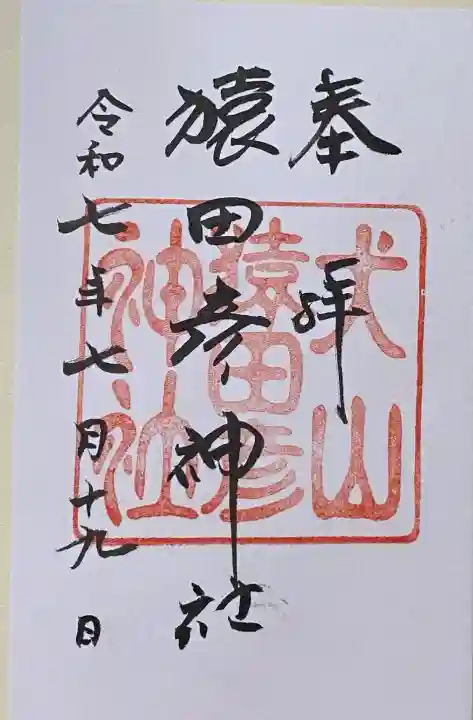 奉拝
猿田彦神社
令和七年七月十九日
犬山
猿田彦
神社